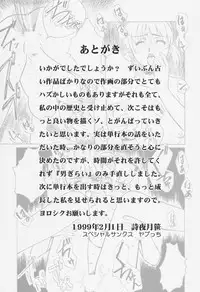 あとがき
いかがでしたでしょうか？ ずいぶん古
い作品ばかりなので作画の部分でとても
ハズかしいものもありますがそれも全て、
私の中の歴史と受け止めて、次こそはも
っと良い物を描くゾ、とがんばっていき
たいと思います。実は単行本の話をいた
だいた時、かなりの部分を直そうと心に
決めたのですが、時間がそれを許してく
れず『男ぎらい』のみ手直ししました。
次に単行本を出す時はきっと、もっと成
長した私を見せられると思いますので、
ヨロシクお願いします。
1999年2月1日 詩夜月笛
スペシャルサンクス ヤブっち